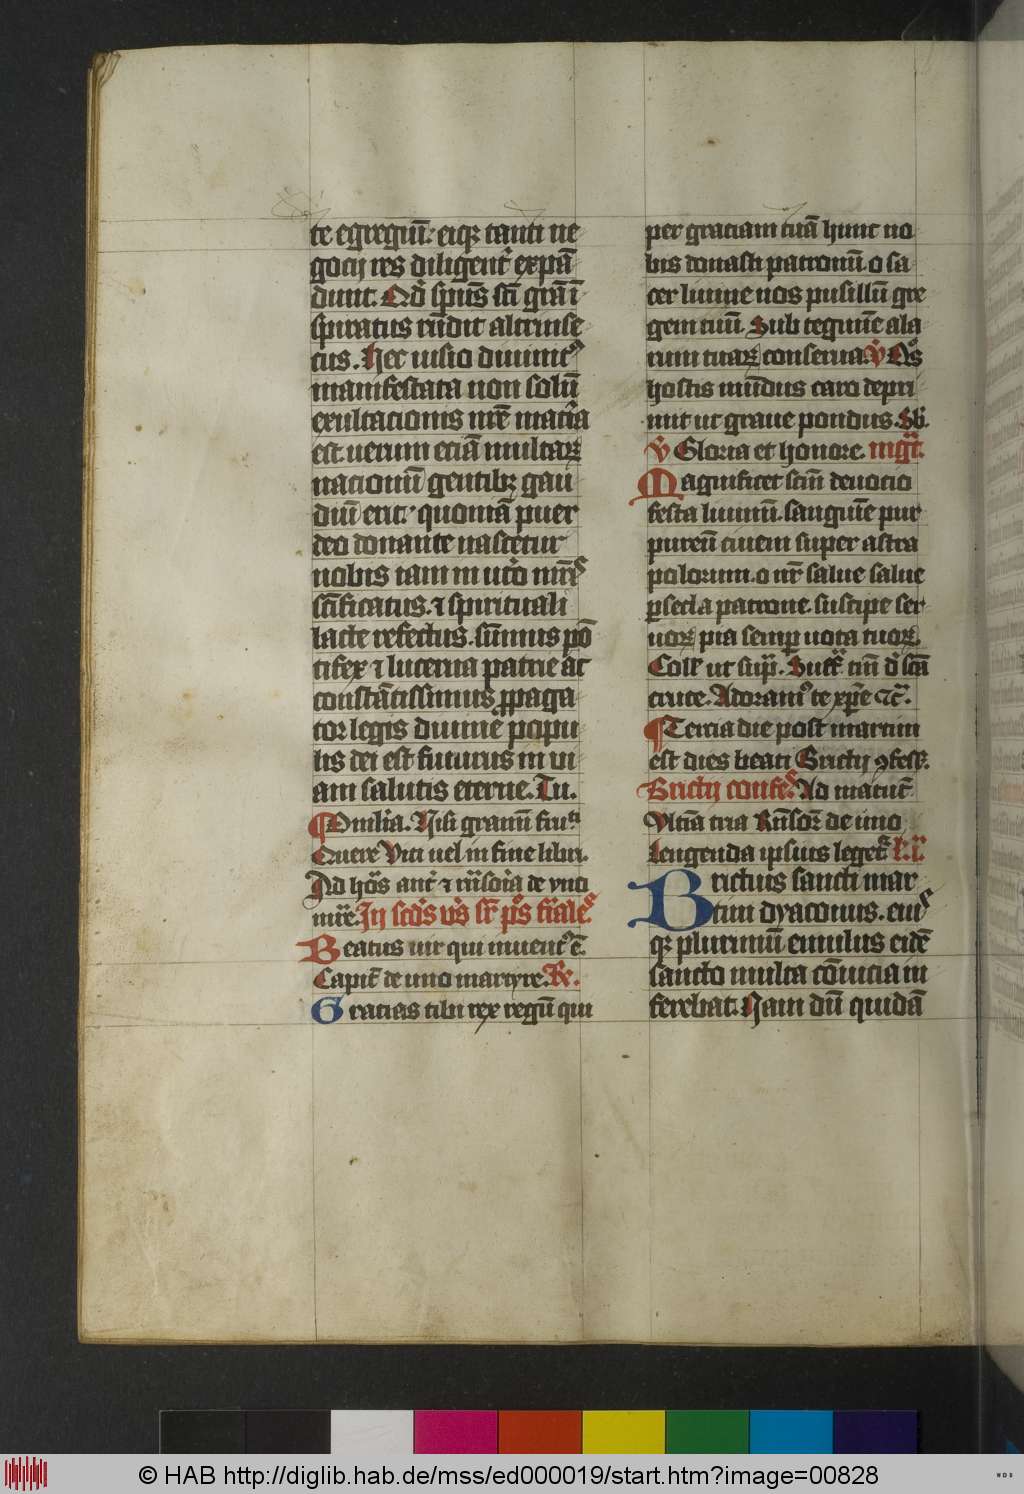 te egregiū. eiqꝫ tanti ne
gocij res diligent̾ expā
dunt. Ad sp̄us sci gr̄a ī
spiratus rn̄dit altriuse
cus. Hec uisio diuinitꝰ
manifestata non solū
exultacionis nr̄e mat̾ia
est. uerum eciā multaꝝ
nacionū gentibꝫ gau
diū erit. quoniā puer
deo donante nascetur
uobis iam in ut̾o mr̄is
sc̄ificatus. ⁊ spirituali
lacte refectus. sūmus pō
tifex ⁊ lucerna patrie ac
constātissimus ꝓpaga
tor legis diuine popu
lis dei est futurus in ui
am salutis eterne. Tu.
Omilia. Nisi granū fru
Quere Viti uel in fine libri.
Ad hōs ant̾ ⁊ rn̄soria de vno
mr̄e. In
Beatus uir qui inuentꝰ ē.
Capit̄ de uno martyre. Re.
Gratias tibi rex regū qui
per graciam tuā hunc no
bis donasti patronū. o sa
cer liuine nos pusillū gre
gem tuū. Sub tegmīe ala
rum tuaꝝ conserua. V̾ Nos
hostis mūdus caro depri
mit ut graue pondus. Sb.
V̾ Gloria et honore. mgt̄.
Magnificet scm̄ deuocio
festa liuinū. sanguīe pur
pureū ciuem super astra
polorum. o nr̄ salue salue
ꝑ secla patrone. suscipe ser
uoꝝ pia semꝑ uota tuoꝝ
Coll̄ ut sup̄. Suffr̄ cū d̾ scā
cruce. Adoramꝰ te xp̄e ⁊c̄.
Tercia die post martini
est dies beati Brictij ꝯfess̾.
Brictij confes̾. Ad matut̄
Vltīa tria Rn̄soꝝ de uno
Lengenda ipsius leget̾ l. i.
Brictius sancti mar
tini dyaconus. eiꝰ
qꝫ plurimū emulus eidē
sancto multa cōuicia in
ferebat. Nam dū quidā
© HAB http://diglib.hab.de/mss/ed000019/start.htm?image=00828